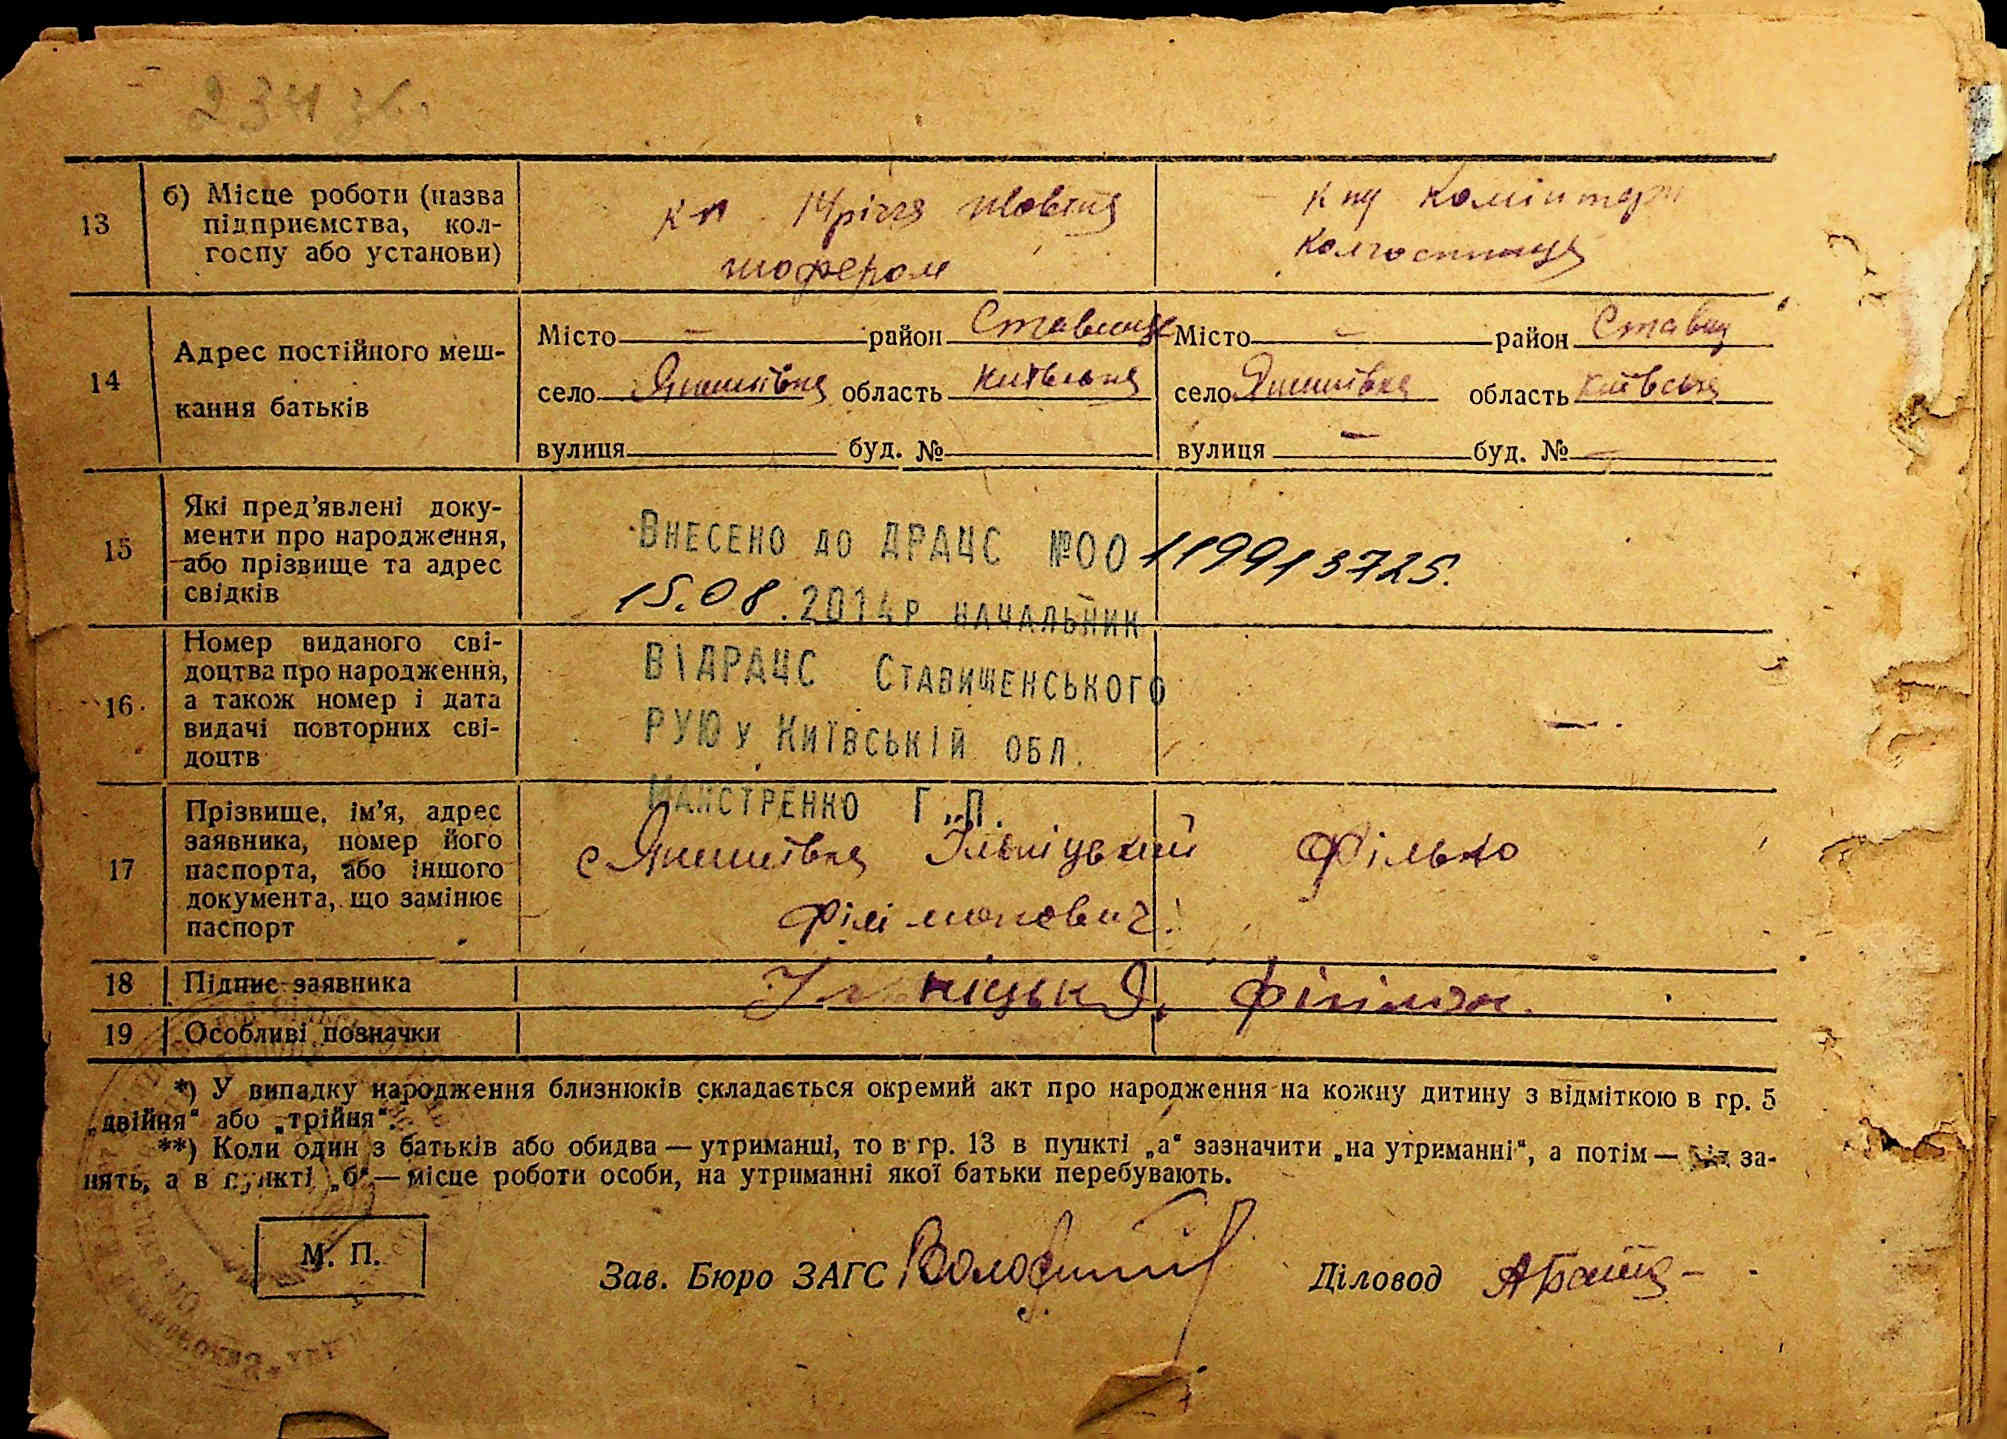 13
б) Місце роботи (назва
підприємства, кол-
госпу або установи)
14річчя жовтня
шофером
Комінтерн
колгоспниця
14
Адрес постійного меш-
кання батьків
Місто — район Ставище
село Янишівка область Київська
вулиця буд. №
Місто — район Ставищ
село Янишівка область Київська
вулиця — буд. №
15
Які пред'явлені доку-
менти про народження,
або прізвище та адрес
свідків
Внесено до ДРАЦС №00119913725.
15.08.2014р начальник
ВІДРАЦС Ставищенського
РУЮ у Київській обл.
Майстренко Г.П.
16
Номер виданого сві-
доцтва про народження,
а також номер і дата
видачі повторних сві-
доцтв
—
17
Прізвище, ім'я, адрес
заявника, номер його
паспорта, або іншого
документа, що замінює
паспорт
с Янишівка Ільніцький Фількo
Філімонович
18
Підпис заявника
19
Особливі позначки
*) У випадку народження близнюків складається окремий акт про народження на кожну дитину з відміткою в гр. 5
„двійня“ або „трійня“.
**) Коли один з батьків або обидва — утриманці, то в гр. 13 в пункті „а“ зазначити „на утриманні“, а потім — від за-
нять, а в пункті „б“ — місце роботи особи, на утриманні якої батьки перебувають.
М. П.
Зав. Бюро ЗАГС
Діловод